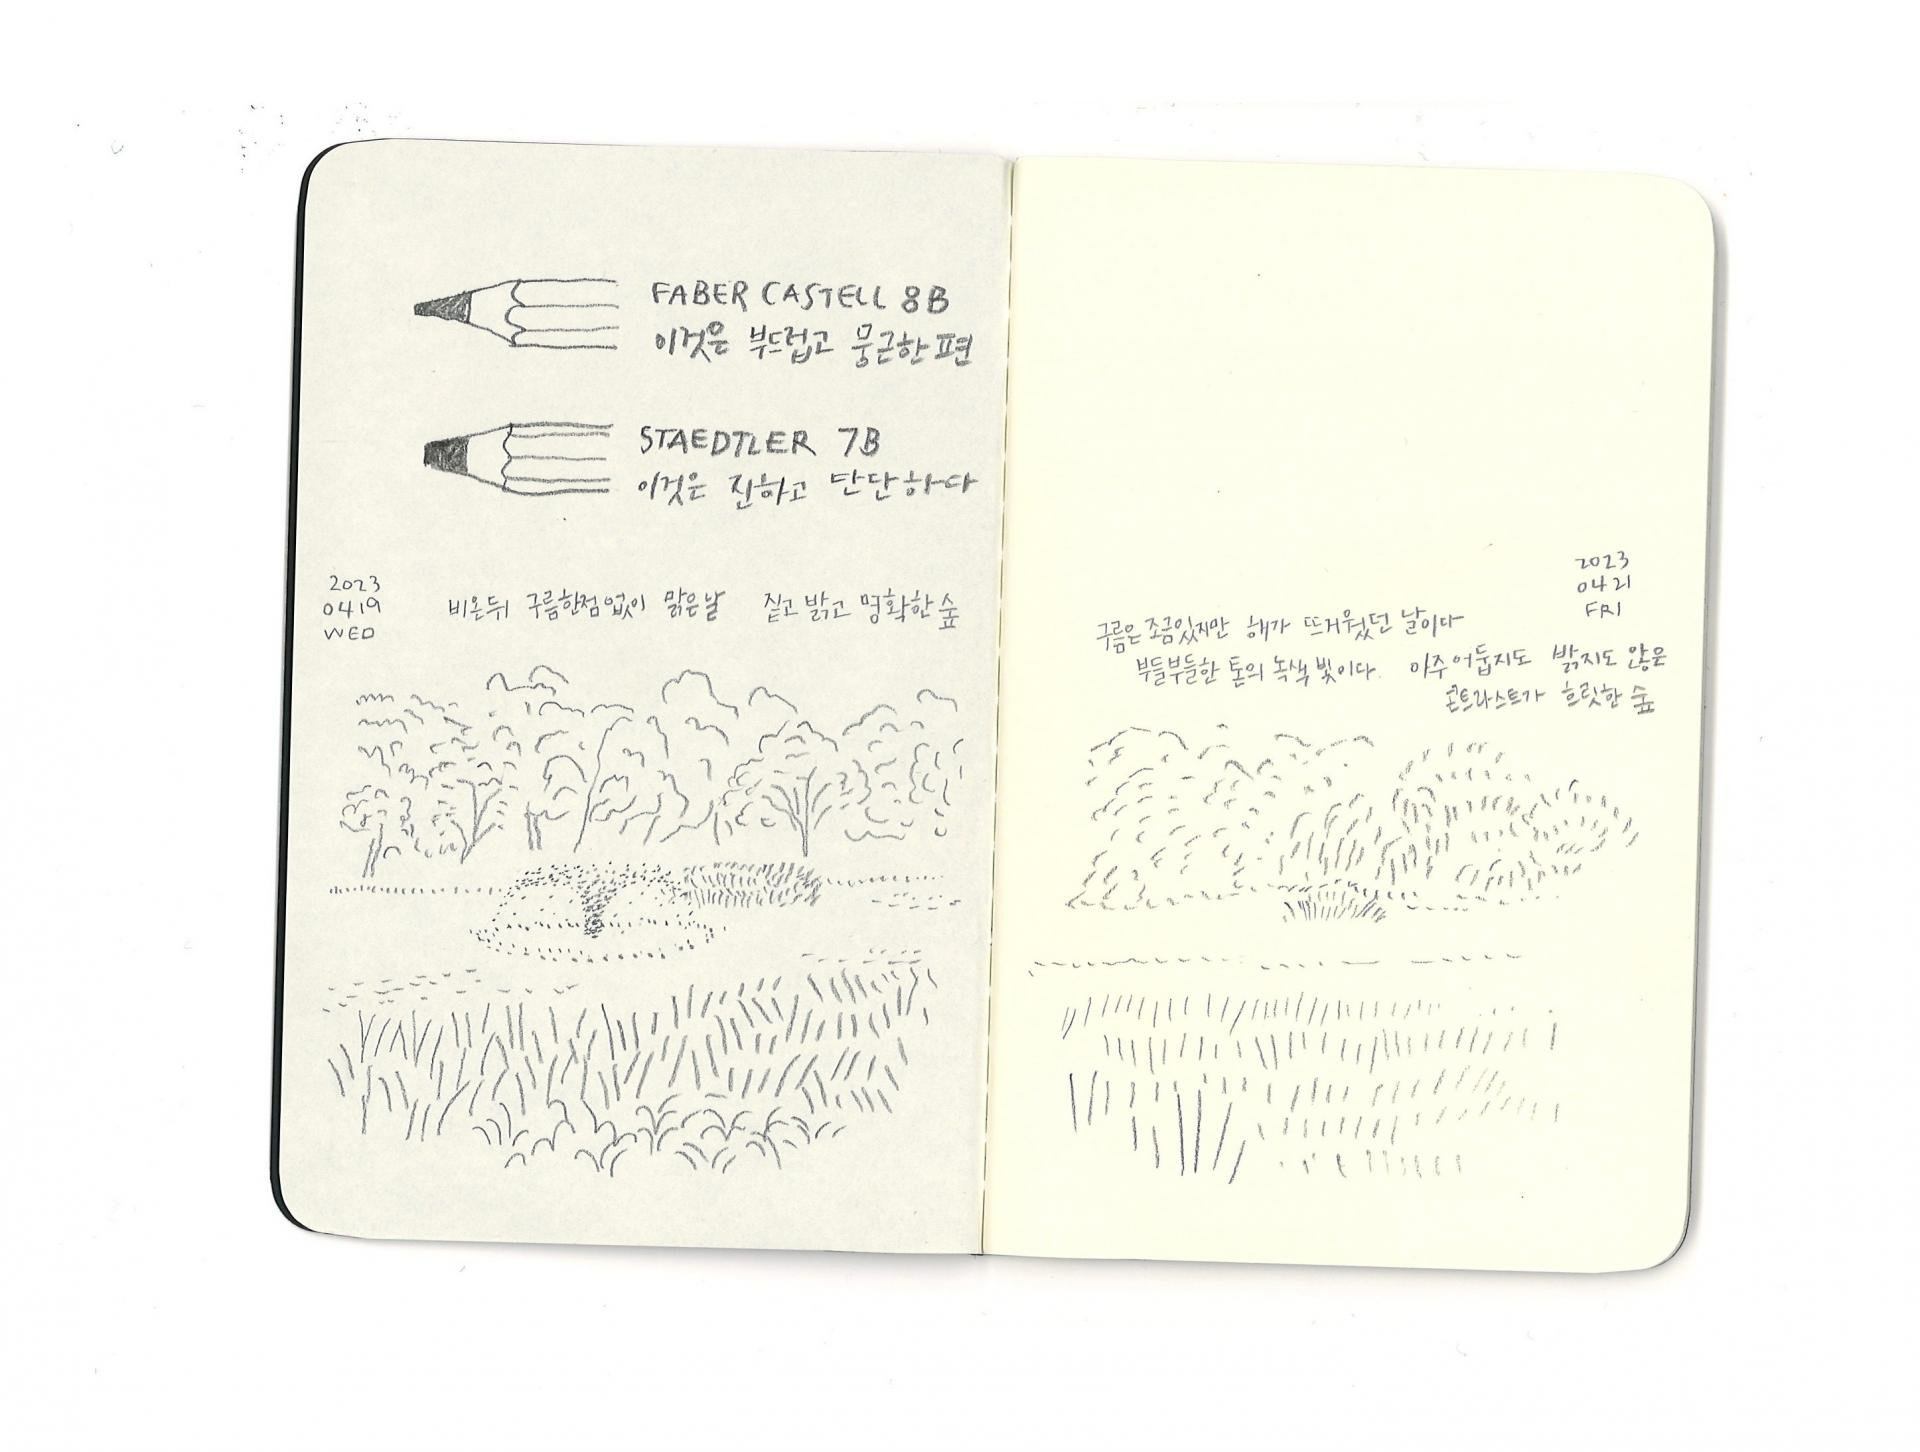 FABER CASTELL 8B
이것은 부드럽고 뭉근한편
STAEDTLER 7B
이것은 진하고 단단하다
2023
0419
WED
비온뒤 구름한점없이 맑은날 짙고 밝고 명확한숲
2023
0421
FRI
구름은 조금있지만 해가 뜨거웠던 날이다
부들부들한 톤의 녹색 빛이다. 아주 어둡지도 밝지도 않은
콘트라스트가 흐릿한 숲